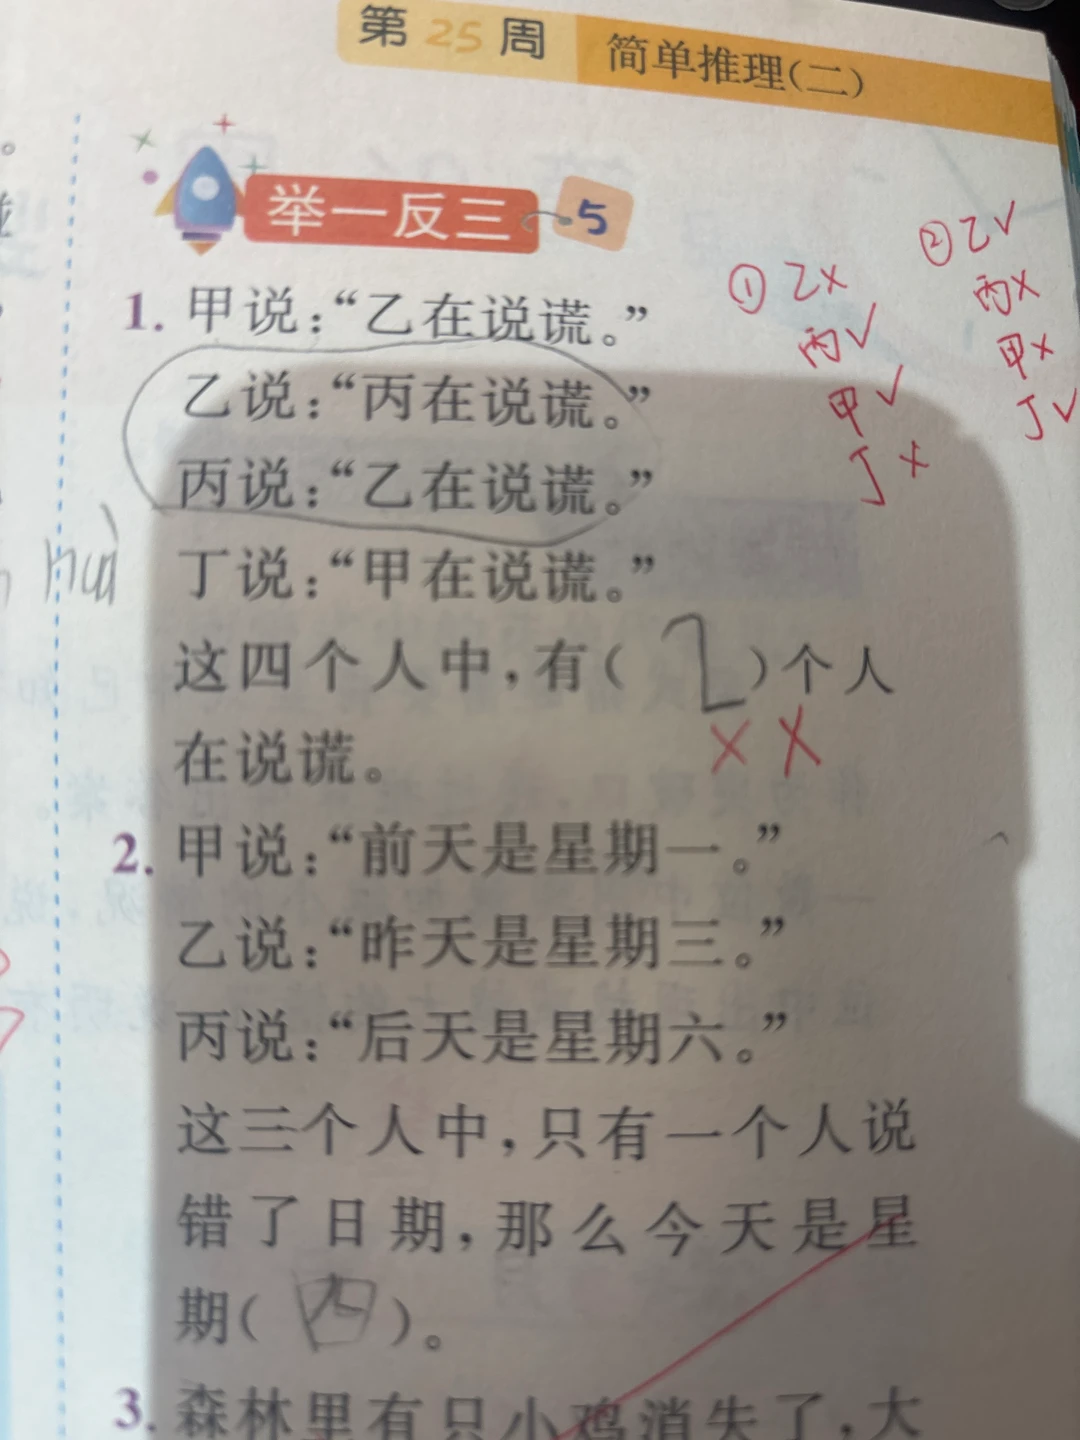 第25周
简单推理(二)
举一反三 5
1. 甲说:“乙在说谎。”
乙说:“丙在说谎。”
丙说:“乙在说谎。”
丁说:“甲在说谎。”
这四个人中,有( 2 )个人
××
在说谎。
2. 甲说:“前天是星期一。”
乙说:“昨天是星期三。”
丙说:“后天是星期六。”
这三个人中,只有一个人说
错了日期,那么今天是星
期( 四 )。
3. 森林里有只小鸡消失了,大
① 乙×
丙√
甲√
丁×
② 乙√
丙×
甲×
丁√